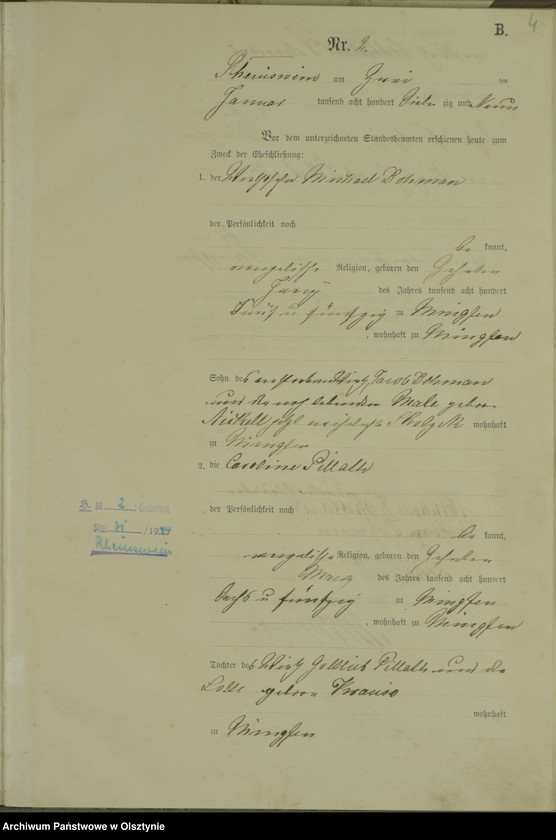 B. 4
Nr. 2.
Rheinswein am Zwei ten
Januar tausend acht hundert Sieben zig und Neun
Vor dem unterzeichneten Standesbeamten erschienen heute zum
Zweck der Eheschließung:
1. der Wirthssohn Michael Dohman
der Persönlichkeit nach
be kannt,
evangelische Religion, geboren den Zehnten
des Jahres tausend acht hundert
Fünf u fünfzig zu Mingfen
, wohnhaft zu Mingfen
Sohn des verstorbenen Wirth Jacob Dohman
und der noch lebenden geboren
jetzt wohnhaft
zu Mingfen
2. die Caroline Pillath
der Persönlichkeit nach
be kannt,
evangelische Religion, geboren den Zehnten
März des Jahres tausend acht hundert
Sechs u fünfzig zu Mingfen
, wohnhaft zu Mingfen
Tochter des Wirth Gottlieb Pillath und der
Lotte geboren Krause
wohnhaft
zu Mingfen
H. 2
31 /19
Rheinswein
Archiwum Państwowe w Olsztynie